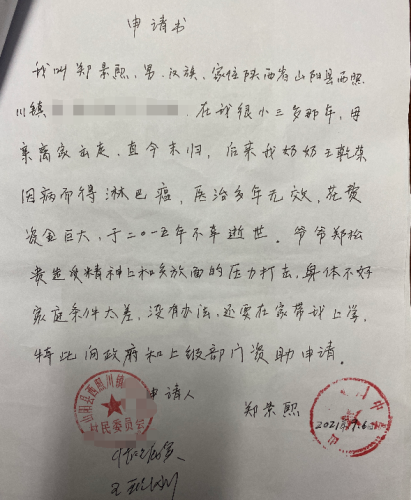 申请书
我叫郑景熙,男,汉族,家住陕西省山阳县西照
川镇 在我很小三岁那年,母
亲离家出走,直今未归,后来我奶奶王乾荣
因病而得淋巴癌,医治多年无效,花费
资金巨大,于二〇一五年不幸逝世。爷爷郑松
贵遭受精神上和多方面的压力打击,身体不好
家庭条件太差,没有办法,还要在家带我上学,
特此向政府和上级部门资助申请。
申请人
郑景熙
山阳县西照川镇
村民委员会
2021